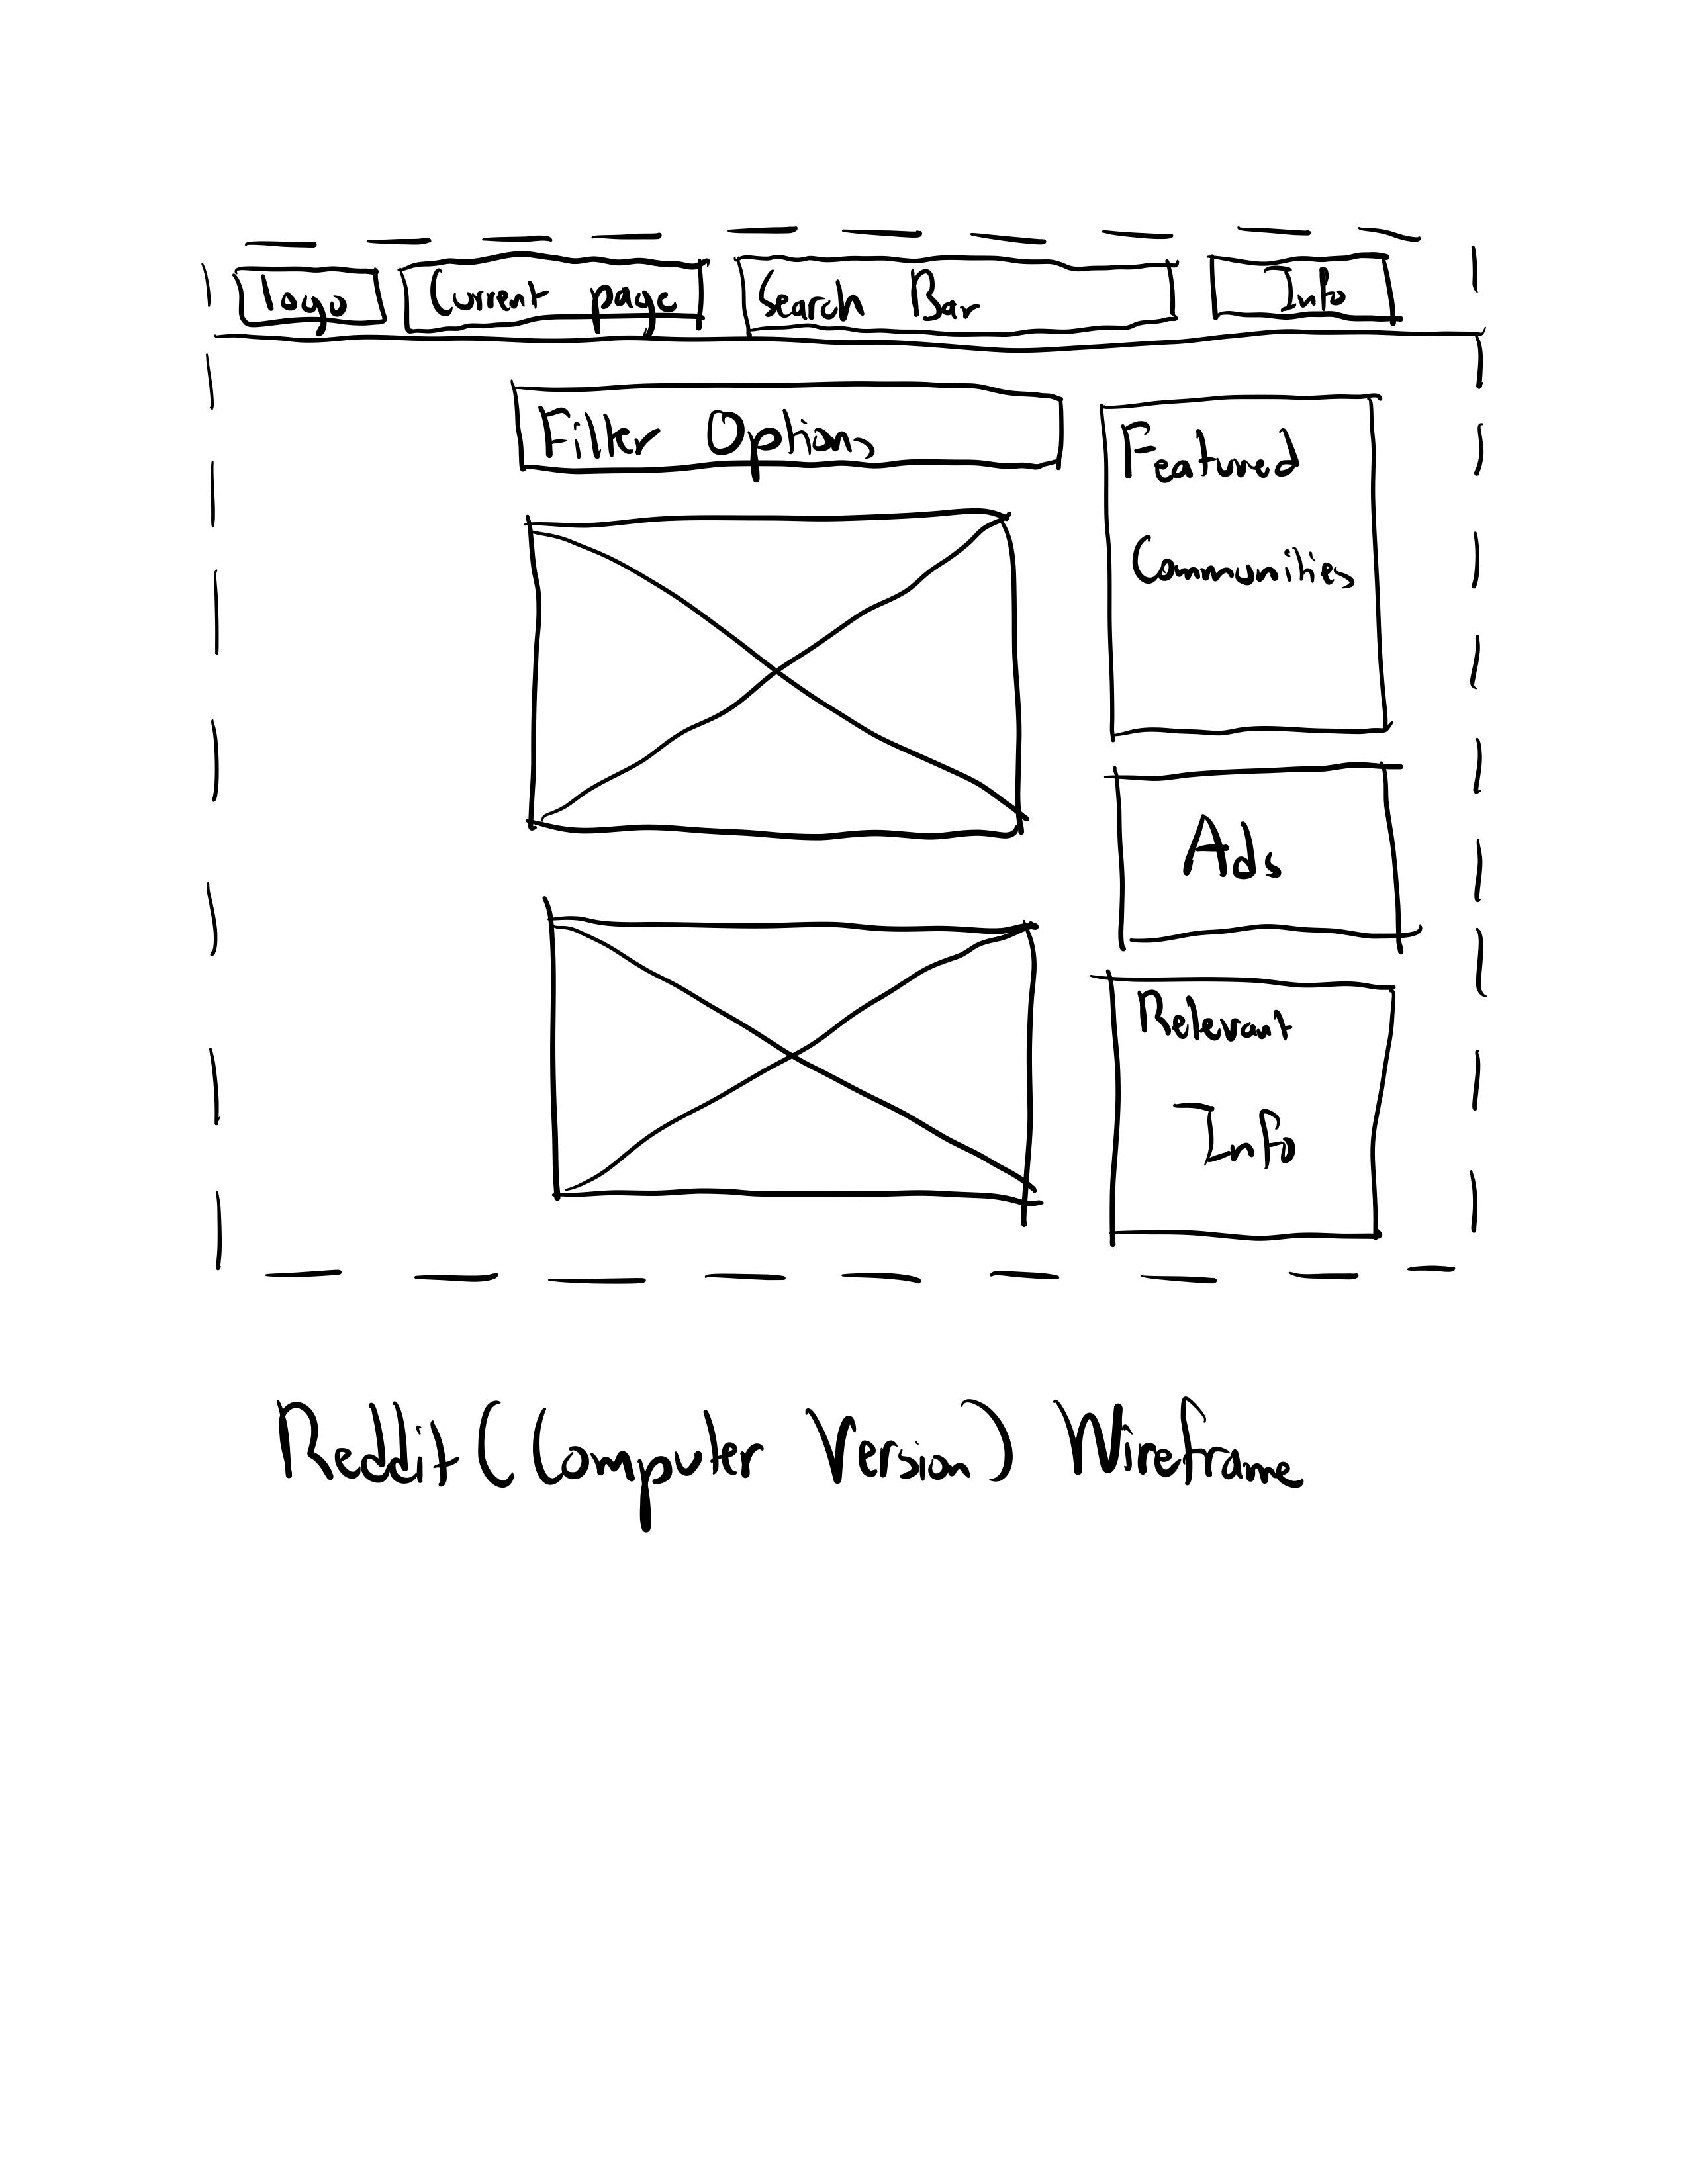 Logo
Current page
Search Bar
Info
Filter Options
Featured
Communities
Ads
Relevant
Info
Reddit (Computer Version) Wireframe